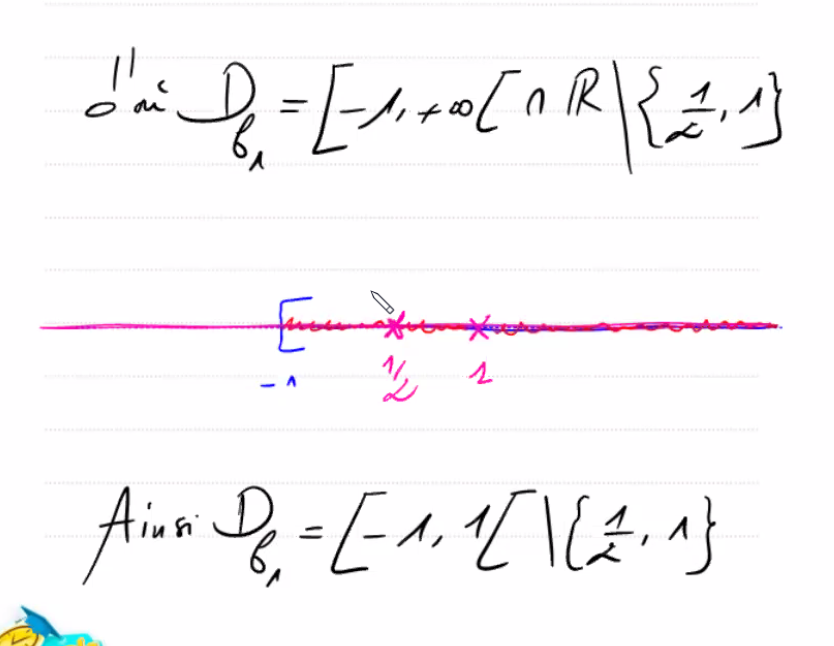 d'où D_{f_1} = [-1, +∞[ ∩ ℝ \ {1/2, 1}
-1 1/2 1
Ainsi D_{f_1} = [-1, 1[ \ {1/2, 1}